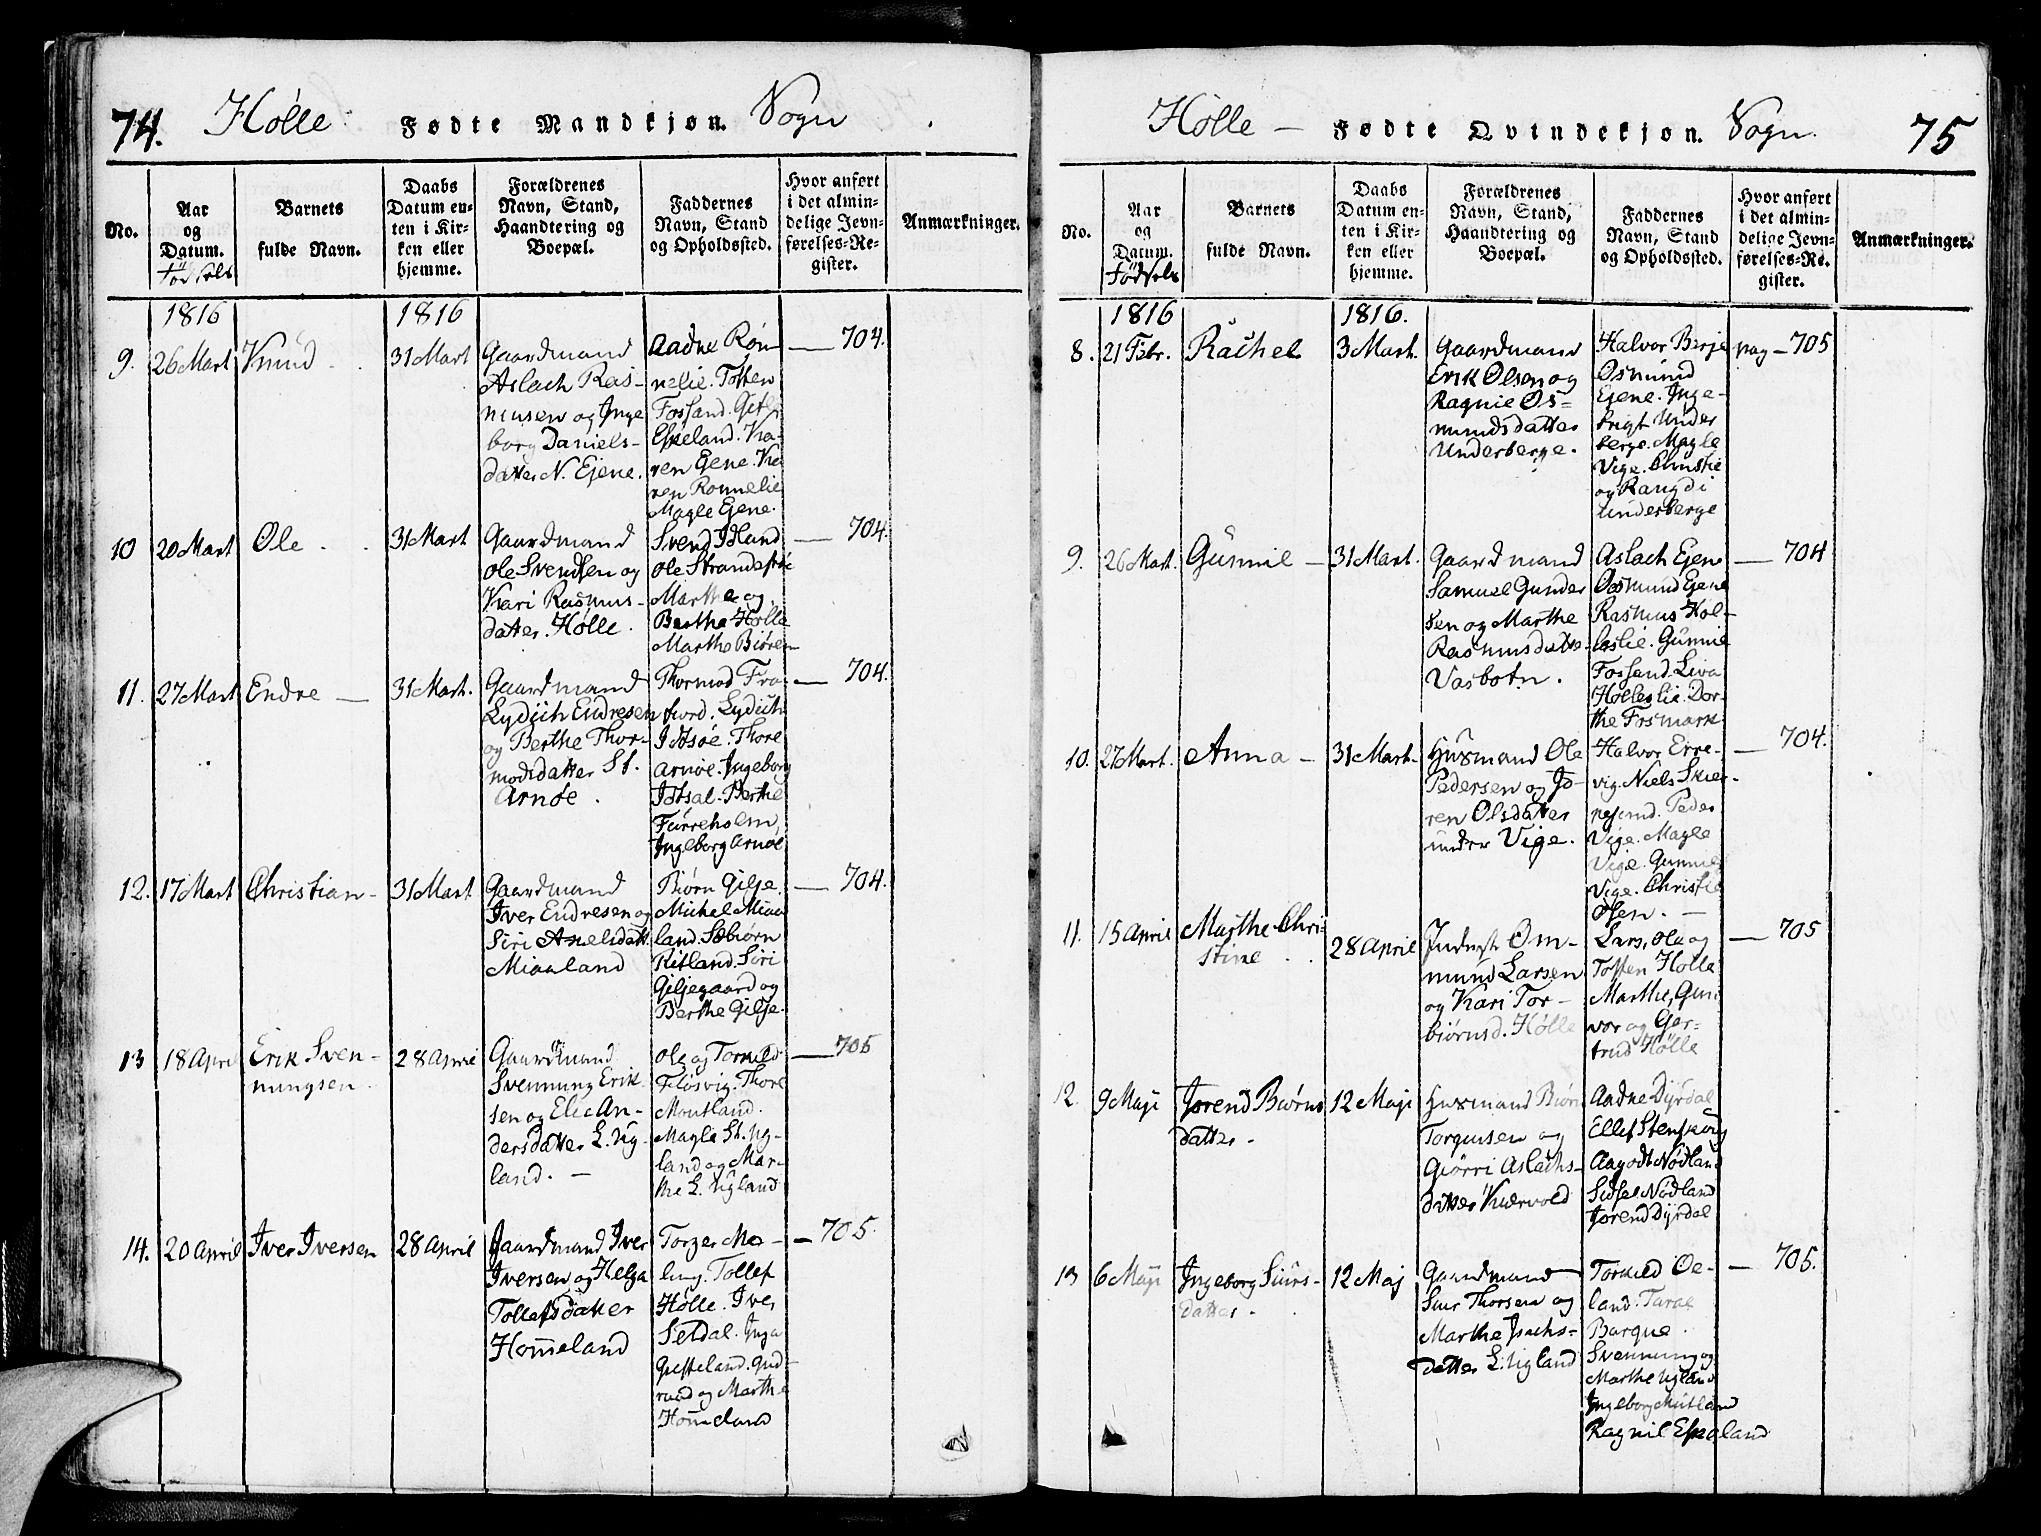 74. Hölle Fødte Mandkjøn. Sogn
No.
Aar og Datum.
Fødsels
Barnets fulde Navn.
Daabs Datum enten i Kirken eller hjemme.
Forældrenes Navn, Stand, Haandtering og Boepæl.
Faddernes Navn, Stand og Opholdssted.
Hvor anført i det almindelige Jevnførelses-Register.
Anmærkninger.
1816
1816
9. 26 Mart Knud 31 Mart
Gaardmand
Aslach Ras-
musen og Inge
borg Daniels-
datter N. Ejene.
Aadne Rön
nelie. Tosten
Fossand.
Espeland. Ka-
ren Ejene. Ka
ren Ronnelie
Magle Ejene.
704.
10 20 Mart Ole 31 Mart
Gaardmand
Ole Svendsen og
Kari Rasmus-
datter. Hölle.
Svend Idland
Ole
Marthe og
Berthe Hölle
Marthe
704.
11. 27 Mart Endre 31 Mart.
Gaardmand
Lydich Endresen
og Berthe Thor-
modsdatter St.
Arnöe.
Thormod Fra-
fiord. Lydich
Idsöe. Thore
Arnöe. Ingeborg
Idsal. Berthe
Furreholm,
Ingeborg Arnöe
704.
12. 17 Mart Christian 31 Mart
Gaardmand
Iver Endresen og
Siri Axelsdatt.
Miaaland
Biörn Gilje.
Michel Miaa
land. Sebiörn
Ritland. Siri
Giljegaard og
Berthe Gilje.
704.
13 18 April Erik Sven-
nungsen.
28 April
Gaardmand
Svennung Erik
sen og Elie An-
dersdatter L. Ug-
land.
Ole og Torkild
Flösvig. Thore
Moutland.
Magla St. Ug-
land og Mar-
the L. Ugland
705
14. 20 April Iver Iversen 28 April
Gaardmand Iver
Iversen og Helga
Tollefsdatter
Hommeland
Torger Mö-
ling. Tollef
Hölle. Iver
Seldal. Inga
Gud-
og Marthe
Hommeland
705.
Hölle Fødte Qvindekjøn. Sogn. 75
No.
Aar og Datum.
Fødsels
Barnets fulde Navn.
Daabs Datum enten i Kirken eller hjemme.
Forældrenes Navn, Stand, Haandtering og Boepæl.
Faddernes Navn, Stand og Opholdssted.
Hvor anført i det almindelige Jevnførelses-Register.
Anmærkninger.
1816
1816.
8. 21 Febr. Rachel 3 Mart.
Gaardmand
Erik Olsen og
Ragnie Os-
mundsdatter
Underberge.
Halvor Berje
Osmund
Ejene. Inge-
brigt Under
berge. Magle
Vige. Christie
og Rangdi
Underberge
pag 705
9. 26 Mart. Gunnil 31 Mart.
Gaardmand
Samuel Gunder
sen og Marthe
Rasmusdatter
Vasbotn.
Aslach Ejene
Osmund Ejene
Rasmus Hol-
leslie. Gunnil
Fossand. Liva
Holleslie. Dor-
the Fosmark
704
10. 27 Mart. Anna 31 Mart.
Husmand Ole
Pedersen og Jo-
ren Olsdatter
under Vige.
Halvor Erre-
vig. Niels

Vige. Magle
Vige. Gunnil
Vige. Christie
Osen.
704.
11. 15 April Marthe Chri-
stine
28 April
Inderst Om-
mund Larsen
og Kari Tor-
biörnsd. Hölle
Lars, Ole og
Tosten Hölle
Marthe, Gun
vor og Ger-
trud Hölle
705
12. 9 Maji Jorend Biörns
datter.
12 Maji
Husmand Biörn
Torgersen og
Giörri Aslachs-
datter Kiærvold
Aadne Dyrdal
Ellef
Aagodt Nödland
Sidsel Nödland
Jorend Dyrdal
13 6 Maji Ingeborg Siurs-
datter.
12 Maj
Gaardmand
Siur Thorsen og
Marthe Isachs-
datter L. Ugland
Torkild Oe-
land. Taral
Barque.
Svennung og
Marthe Ugland
Ingeborg Mutland
Ragnil Espeland
705.